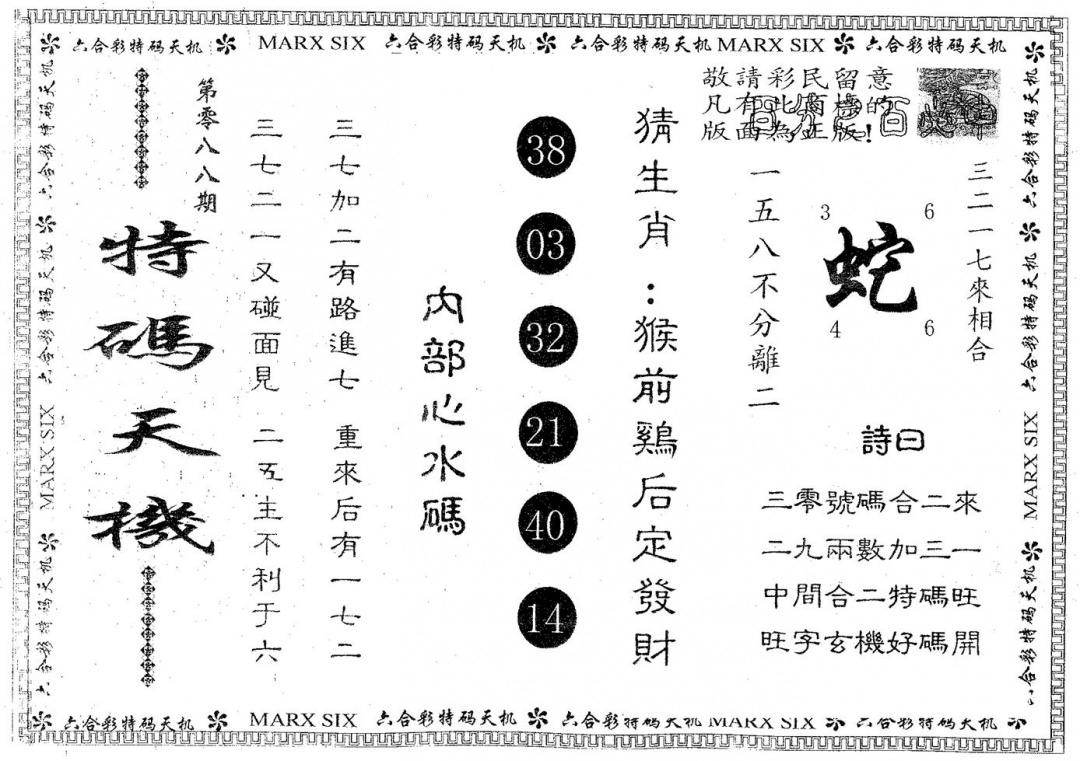 六合彩特码天机 MARX SIX 六合彩特码天机 六合彩特码天机 MARX SIX 六合彩特码天机
敬請彩民留意
凡有此商標的
版面為正版!
三二一七來相合
3 6
蛇
4 6
一五八不分離二
詩曰
三零號碼合二來
二九兩數加三一
中間合二特碼旺
旺字玄機好碼開
猜生肖:猴前鷄后定發財
38
03
32
21
40
14
内部心水碼
三七加二有路進七 重來后有一七二
三七二一又碰面見 二五主不利于六
第零八八期
特碼天機
六合彩特码天机 六合彩特码天机 MARX SIX 六合彩特码天机
六合彩特码天机 六合彩特码天机 MARX SIX 六合彩特码天机
六合彩特码天机 MARX SIX 六合彩特码天机 六合彩特码天机 MARX SIX 六合彩特码天机